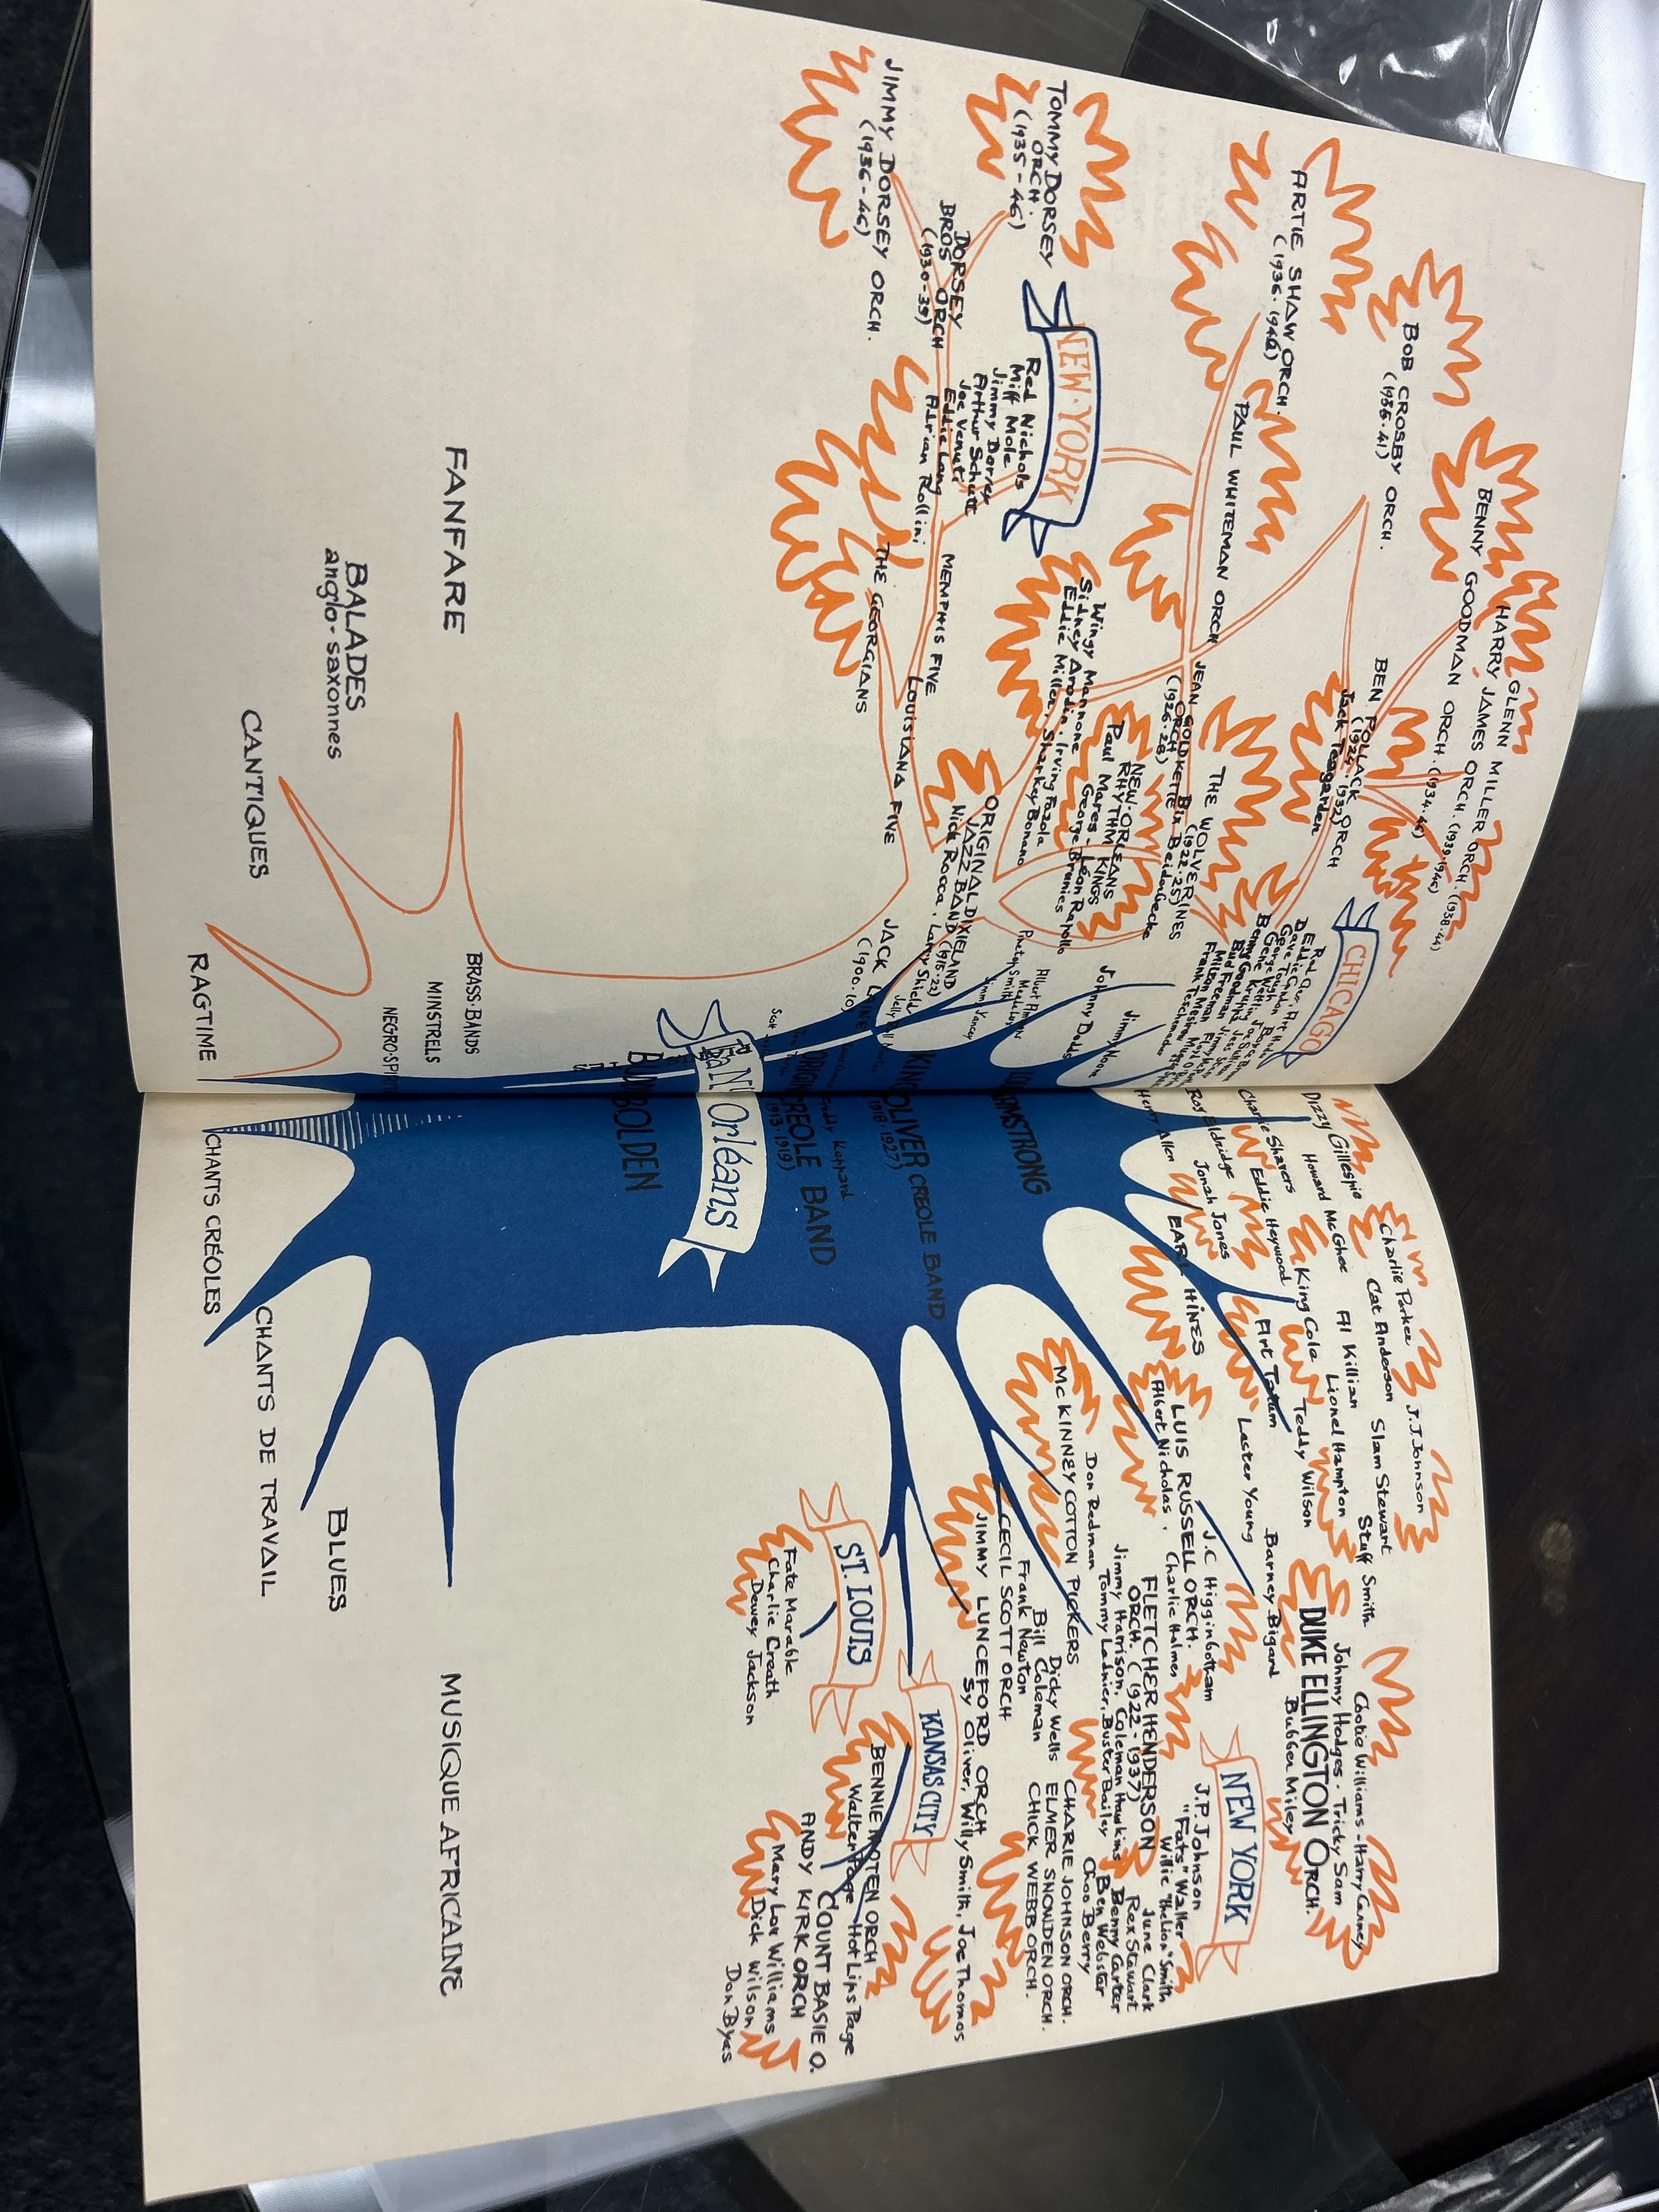 GLENN MILLER ORCH. (1938-44)
HARRY JAMES ORCH. (1939-1946)
BENNY GOODMAN ORCH. (1934-46)
BOB CROSBY ORCH.
(1935-41)
BEN POLLACK ORCH
Jack Teagarden
ARTIE SHAW ORCH.
(1936-1946)
PAUL WHITEMAN ORCH
CHICAGO
THE WOLVERINES
(1922-25)
Bix Beiderbecke
JEAN GOLDKETTE
ORCH
(1926-28)
NEW-ORLEANS
RHYTHM KINGS
Paul Mares - Léon Rapollo
George Brunies
Wingy Mannone
Sidney Arodin, Irving Fazola
Eddie Miller, Sharkey Bonano
TOMMY DORSEY
ORCH.
(1935-46)
NEW-YORK
Red Nichols
Miff Mole
Jimmy Dorsey
Arthur Schutt
Joe Venuti
Eddie Lang
Adrian Rollini
DORSEY
BROS ORCH
(1930-35)
JIMMY DORSEY ORCH.
(1936-46)
MEMPHIS FIVE
THE GEORGIANS
LOUISIANA FIVE
ORIGINAL DIXIELAND
JAZZ BAND (1915-22)
Nick Rocca, Larry Shield
JACK LAINE
(1900-10)
Johnny Dodds
Jimmy Noone
Jimmy Yancey
Charlie Parker
J.J. Johnson
Dizzy Gillespie
Howard McGhee
Cat Anderson
Al Killian
Slam Stewart
Stuff Smith
Charlie Shavers
Eddie Heywood
King Cole
Lionel Hampton
Teddy Wilson
Roy Eldridge
Jonah Jones
Art Tatum
Lester Young
Barney Bigard
Henry Allen
EARL HINES
Cootie Williams - Harry Carney
Johnny Hodges - Tricky Sam
DUKE ELLINGTON ORCH.
Bubber Miley
NEW YORK
J.P. Johnson
"Fats" Waller
Willie "the Lion" Smith
June Clark
Rex Stewart
Benny Carter
Ben Webster
Choo Berry
LUIS RUSSELL ORCH.
Albert Nicholas, Charlie Holmes
J.C Higginbotham
FLETCHER HENDERSON
ORCH. (1922-1937)
Jimmy Harrison, Coleman Hawkins
Tommy Ladnier, Buster Bailey
Don Redman
McKINNEY COTTON PICKERS
CHARIE JOHNSON ORCH.
ELMER SNOWDEN ORCH.
CHICK WEBB ORCH.
Dicky Wells
Bill Coleman
Frank Newton
CECIL SCOTT ORCH
JIMMY LUNCEFORD ORCH
Sy Oliver, Willy Smith, Joe Thomas
ARMSTRONG
KING OLIVER CREOLE BAND
(1918-1927)
Freddy Keppard
CREOLE BAND
(1913-1919)
Orléans
BOLDEN
KANSAS CITY
BENNIE MOTEN ORCH
Walter Page - Hot Lips Page
COUNT BASIE O.
ANDY KIRK ORCH
Mary Lou Williams
Dick Wilson
Don Byas
ST. LOUIS
Fate Marable
Charlie Creath
Dewey Jackson
FANFARE
BRASS-BANDS
MINISTRELS
BALADES
anglo-saxonnes
CANTIQUES
RAGTIME
CHANTS CRÉOLES
CHANTS DE TRAVAIL
BLUES
MUSIQUE AFRICAINE